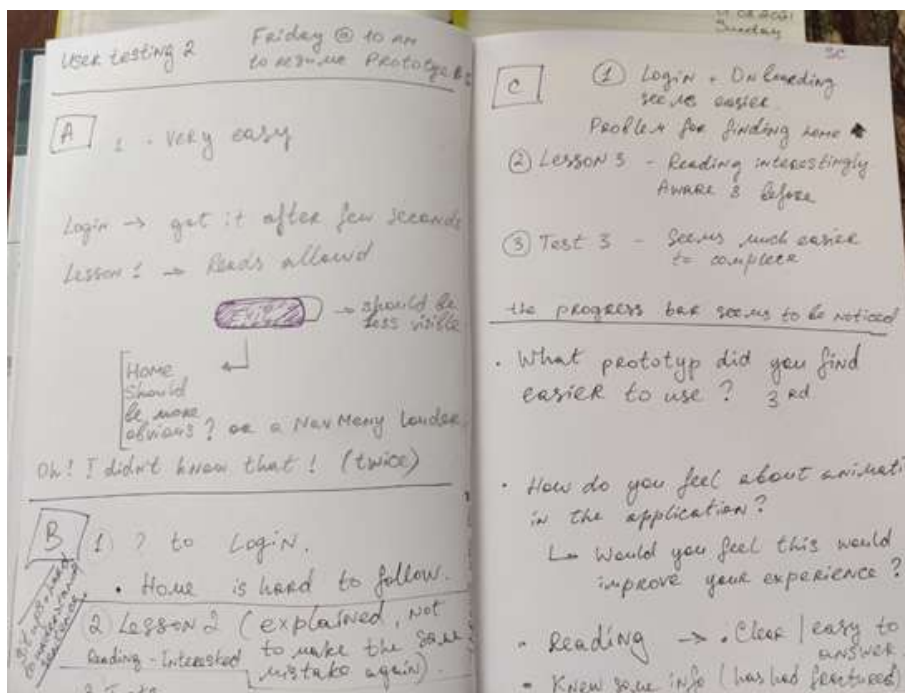 User testing 2
Friday @ 10 am
to resume Prototype B
A
1 . very easy
Login → got it after few seconds
Lesson 1 → Reads allowd
EXIT → should be
less visible
Home
Should
be more
obvious ? or a Nav Meny
Oh! I didn't know that ! (twice)
B
1) ? to Login.
• Home is hard to follow.
2) Lesson 2 (explained, not
to make the same
mistake again).
Reading - Interested
hard
to understand
sentence.
2021
Sunday
C
① Login + Onboarding
seems easier.
Problem for finding home
② Lesson 3 - Reading interestingly
Aware 3 before
③ Test 3 - Seems much easier
to complete
the progress bar seems to be noticed
• What prototyp did you find
easier to use ? 3rd
• How do you feel about animati
in the application?
↳ Would you feel this would
improve your experience ?
- Reading → . Clear / easy to
answer.
- Knew some info (has had